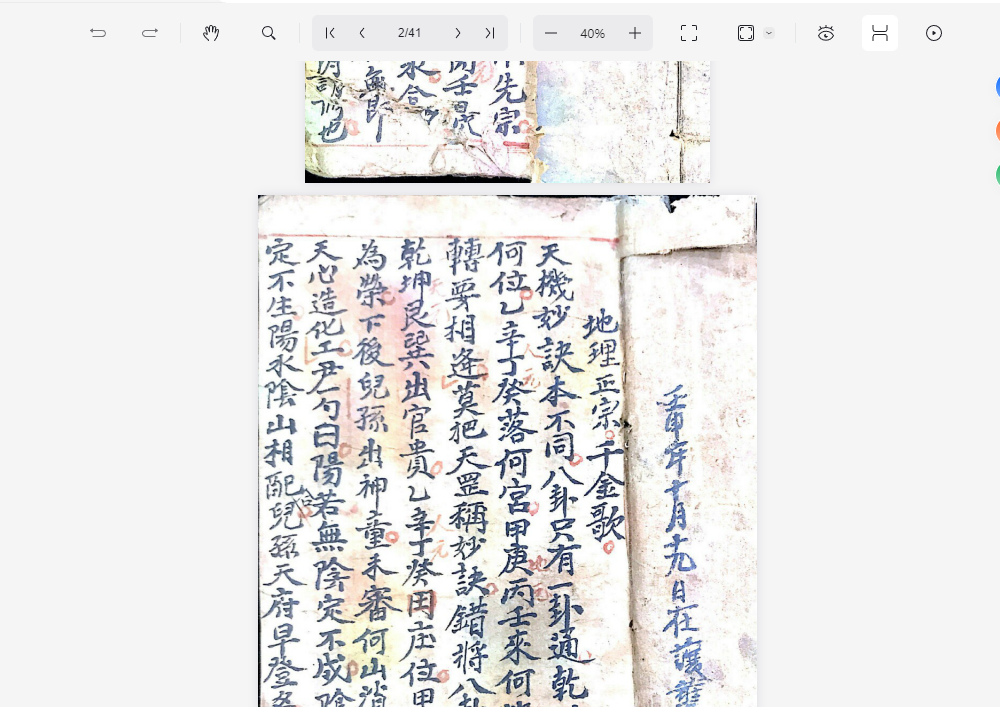 2/41
40%
先宗
壬
合
無即
也
壬申年十月日在護
地理正宗千金歌
天機妙訣本不同八卦只有一卦通乾
何位乙辛丁癸落何宮甲庚丙壬來何
人元
地元
轉要相逢莫把天罡稱妙訣錯將八卦
乾坤艮巽出官貴乙辛丁癸田庄位甲
人元
為榮下後兒孫出神童未審何山消
天心造化工尹勺曰陽若無陰定不成陰
定不生陽水陰山相配合兒孫天府早登